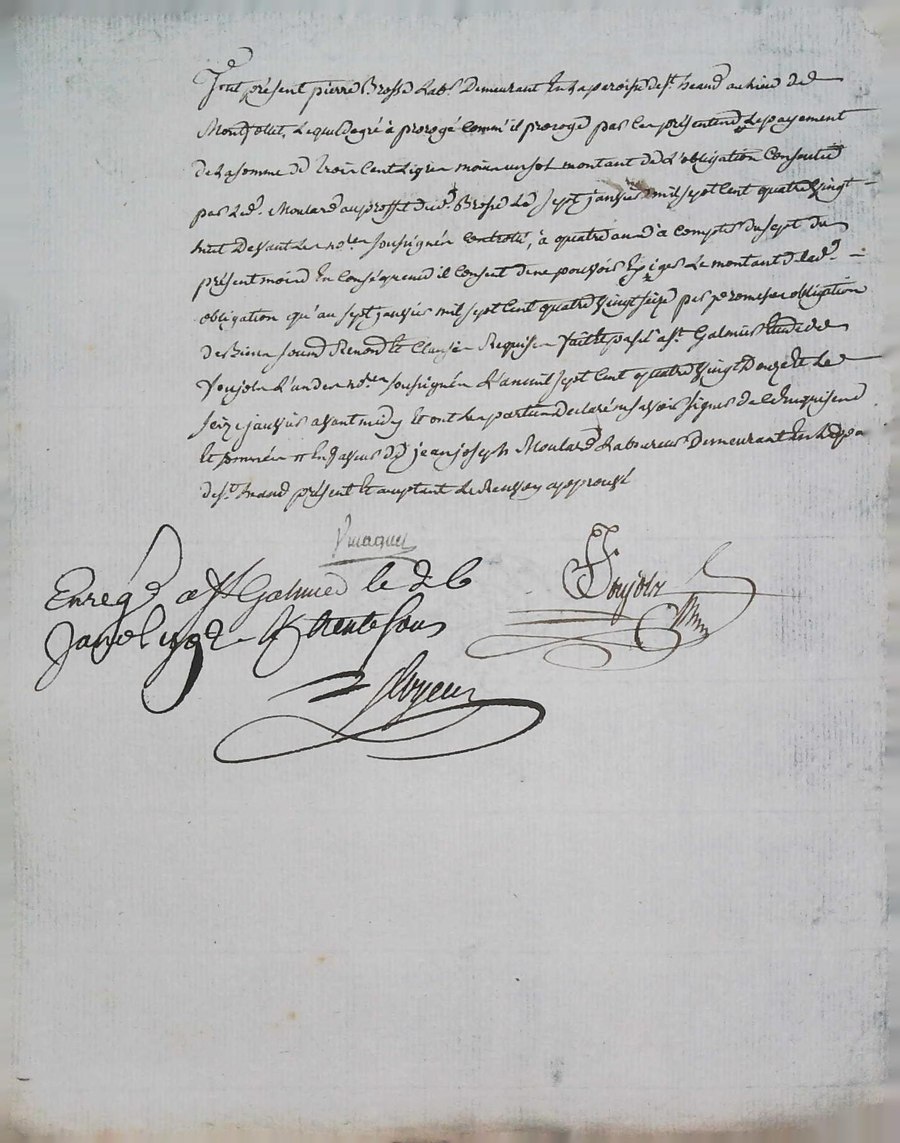 fut présent pierre Brosse Labr. Demeurant En La paroisse de st. heand au lieu de
Montfollet, Lequel degré à prorogé comm'il proroge par Les présentes Le payement
de La somme de trois Cent Livres moins un sol montant de L'obligation Consentie
par Led. Moulard au proffit dud. Brosse Le sept janvier mil sept Cent quatre vingt
huit Devant Les nores. soussignés controlé, à quatre ans à Compter du sept du
présent mois En Conséquence il Consent de ne pouvoir Exiger Le montant de lad.
obligation qu'au sept janvier mil sept Cent quatre vingt seize par promesses obligation
des Biens soumd Renond et Clauses Requises faitte passé a st. Galmier Etude de
Poujols L'un des nores. soussignés L'an mil sept Cent quatre vingt Douze et Le
seize janvier avant midy Et ont Les parties déclaré ne savoir signer de Ce Enquises
et sommées En faveur de jean joseph Moulard Laboureur Demeurant En lad. par.
de st. heand présent et acceptant Le Renvoy approuvé
Enregé a St Galmier le 26
Janv 1792 Rx trente sous
Poujols